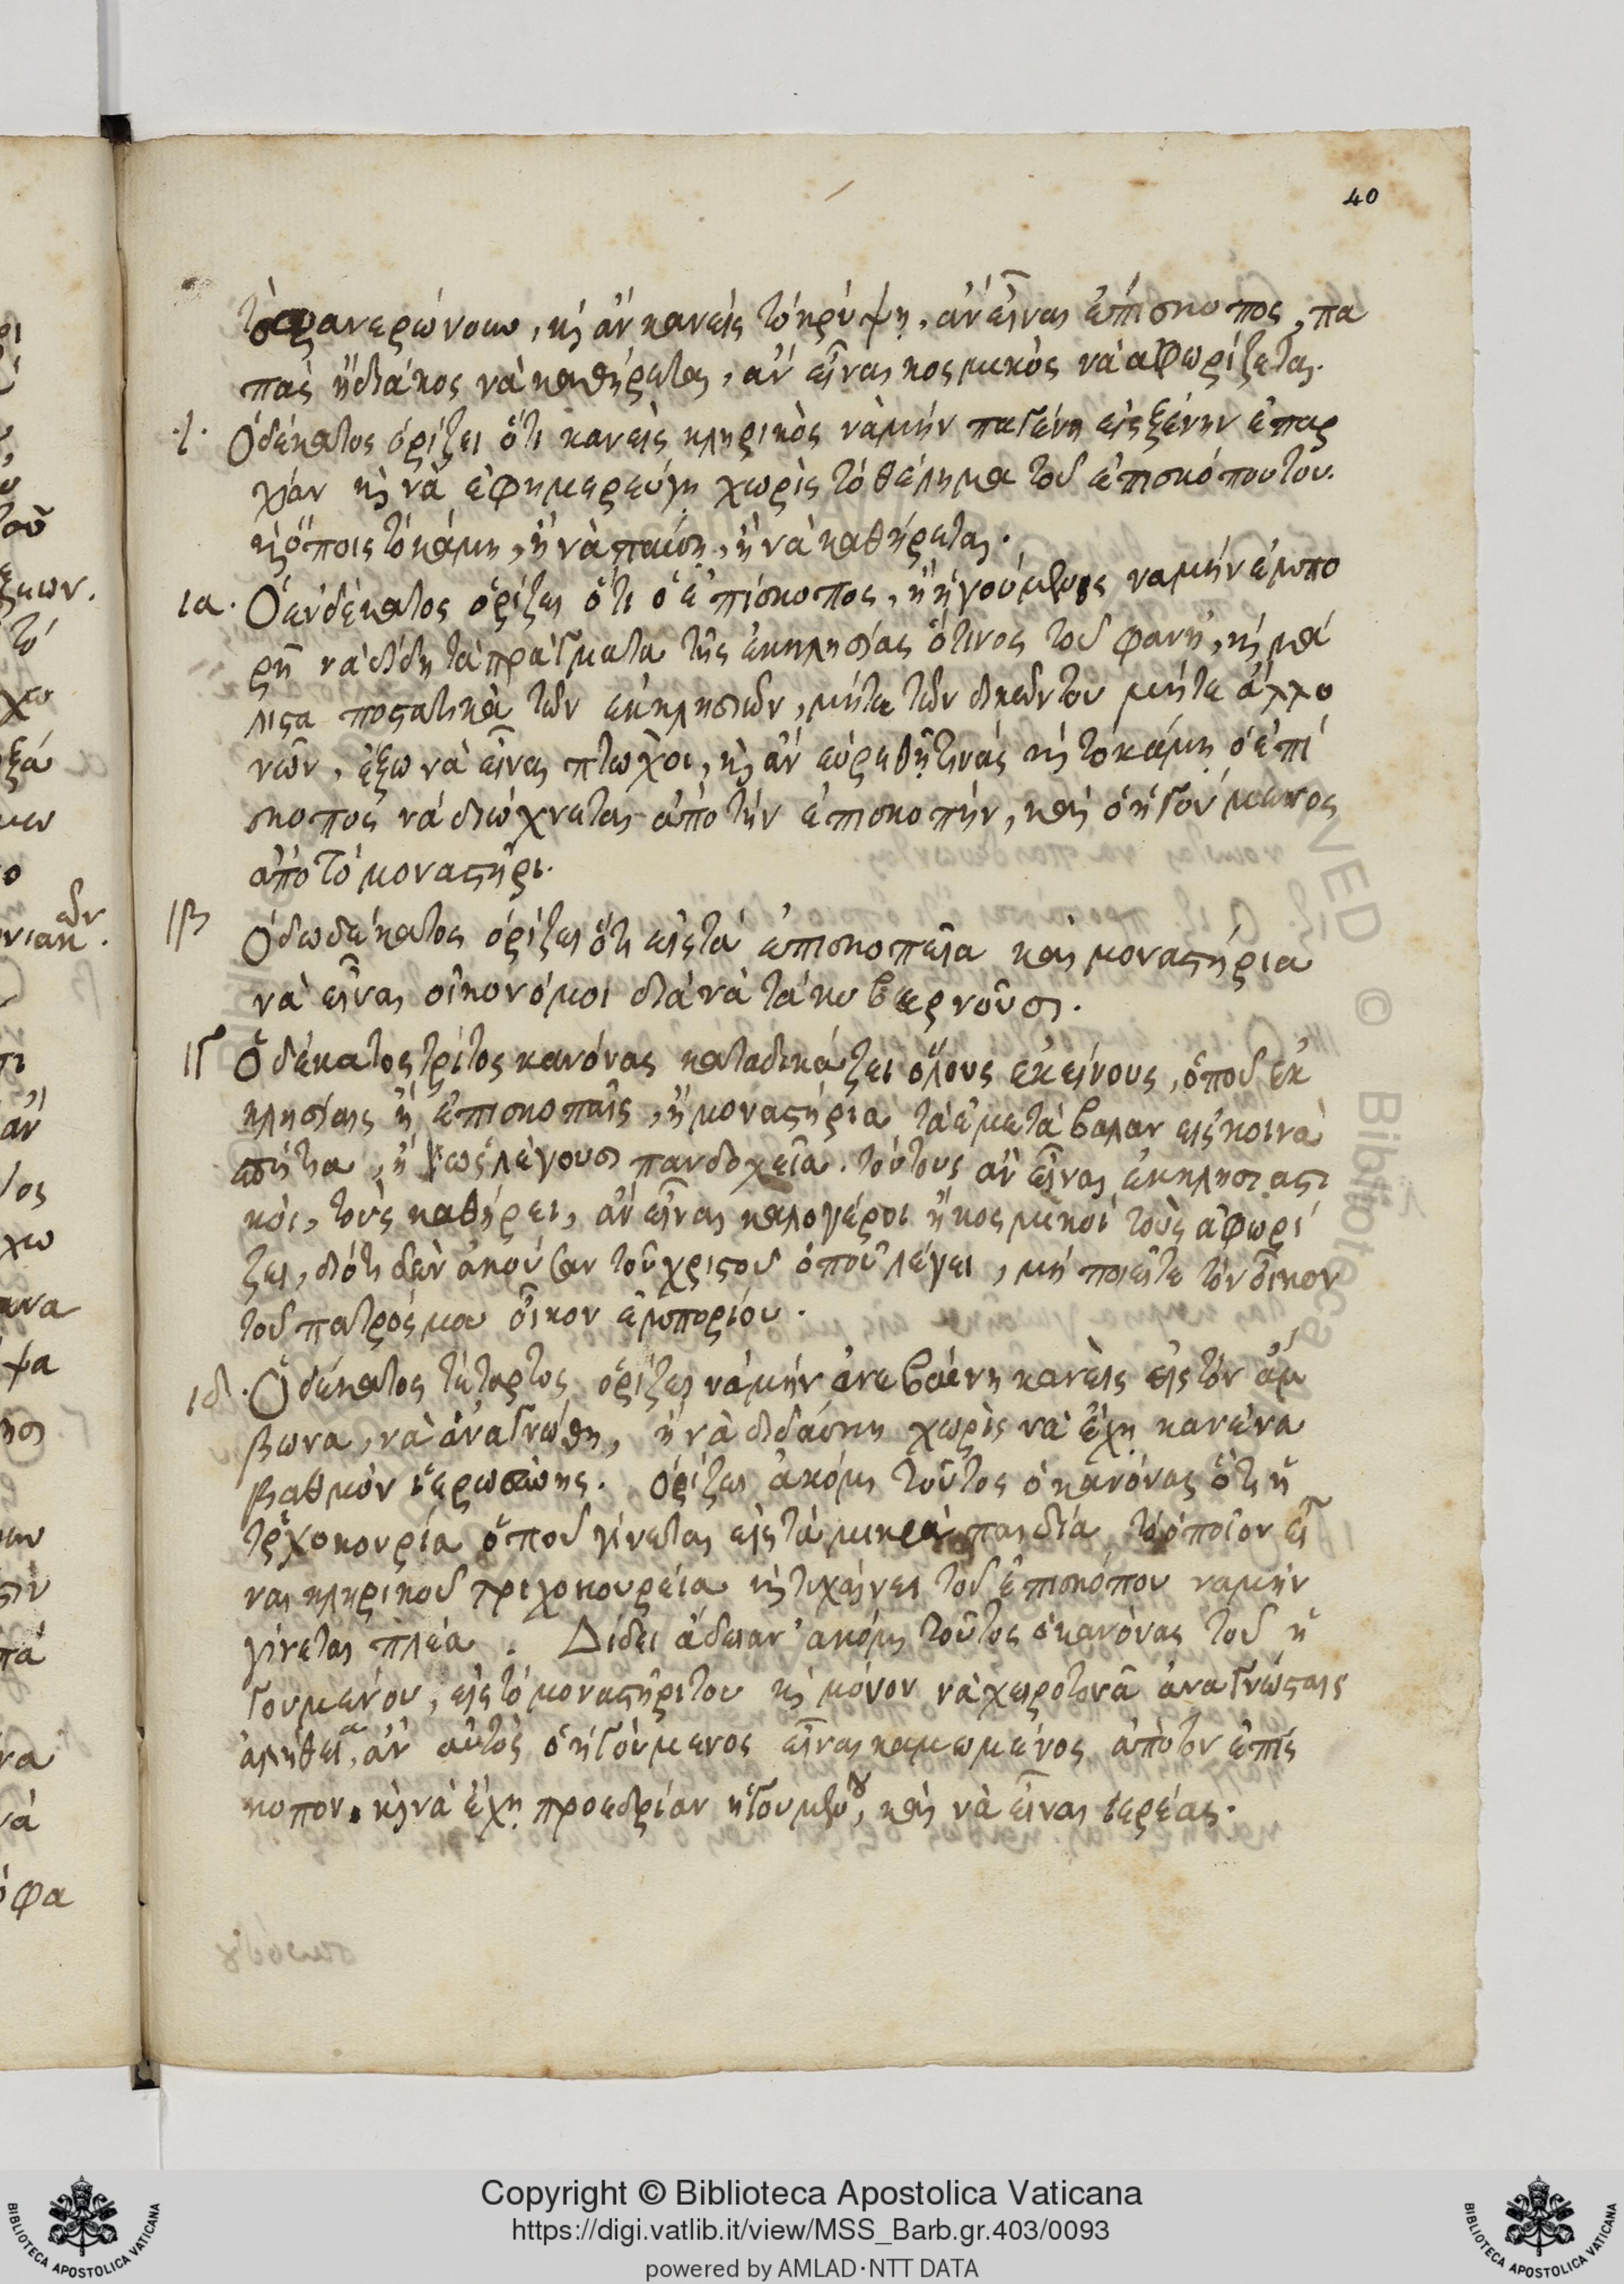 40
τὰ φανερώνουν, κὶ ἂν κανεὶς τὸ κρύψῃ, ἂν εἶναι ἐπίσκοπος, πα
πᾶς ἢ διάκος νὰ καθήρεται, ἂν εἶναι κοσμικὸς νὰ ἀφωρίζεται.
.ι. Ὁ δέκατος ὁρίζει ὅτι κανεὶς κληρικὸς νὰ μὴν παγένῃ εἰς ξένην ἐπαρ
χίαν κὶ νὰ ἐφημερεύγῃ χωρὶς τὸ θέλημα τοῦ ἐπισκόπου του.
κὶ ὅποις τὸ κάμῃ, ἢ νὰ παύσῃ, ἢ νὰ καθήρεται.
ια. Ὁ ἑνδέκατος ὁρίζει ὅτι ὁ ἐπίσκοπος, ἢ ἡγούμενος να μὴν ἐμπο
ρῆ νὰ δίδῃ τὰ πράγματα τῆς ἐκκλησίας ὅτινος τοῦ φανῇ, κὶ μά
λιϛα ποϛατικὰ τῶν ἐκκλησιῶν, μήτε τῶν δικῶν του μήτε ἀλλο
νῶν, ἔξω νὰ εἶναι πτωχοὶ, κὶ ἂν εὑρεθῇ τινὰς κὶ τὸ κάμῃ ὁ ἐπί
σκοπος νὰ διώχνεται ἀπὸ τὴν ἐπισκοπὴν, καὶ ὁ ἡγούμενος
ἀπὸ τὸ μοναϛῆρι.
ιβ Ὁ δωδέκατος ὁρίζει ὅτι εἰς τὰ ἐπισκοπεῖα καὶ μοναϛήρια
νὰ εἶναι οἰκονόμοι διὰ νὰ τὰ κυβερνοῦσι.
ιγ Ὁ δέκατος τρίτος κανόνας καταδικάζει ὅλους ἐκείνους, ὁποῦ ἐκ
κλησίαις ἢ ἐπισκοπαῖς, ἢ μοναϛήρια τὰ ἐμετάβαλαν εἰς κοινὰ
σπήτια, ἢ ὡς λέγουσι πανδοχεῖα. τούτους ἂν εἶναι ἐκκλησιαϛι
κοὶ, τοὺς καθήρει, ἂν εἶναι καλογέροι ἢ κοσμικοὶ τοὺς ἀφωρί
ζει, διότι δὲν ἀκούβαν τοῦ χριϛοῦ ὁποῦ λέγει, μὴ ποιεῖτε τὸν οἶκον
τοῦ πατρός μου οἶκον ἐμπορίου.
ιδ. Ὁ δέκατος τέταρτος ὁρίζει νὰ μὴν ἀνεβαίνῃ κανεὶς εἰς τὸν ἄμ
βωνα, νὰ ἀναγνώθῃ, ἢ νὰ διδάσκῃ χωρὶς νὰ ἔχῃ κανένα
βαθμὸν ἱερωσύνης. ὁρίζει ἀκόμι τοῦτος ὁ κανόνας ὅτι ἡ
τριχοκουρία ὁποῦ γίνεται εἰς τὰ μικρὰ παιδία, τὸ ὁποῖον εἶ
ναι κληρικοῦ τριχοκουρεία κὶ τυχαίνει τοῦ ἐπισκόπου να μὴν
γίνεται πλέα. Δίδει ἄδειαν ἀκόμι τοῦτος ὁ κανόνας τοῦ ἡ
γουμένου, εἰς τὸ μοναϛῆρι του κὶ μόνον νὰ χειροτονᾶ ἀναγνώϛαις
ἀληθεία, ἂν αὐτὸς ὁ ἡγούμενος εἶναι καμωμένος ἀπὸ τὸν ἐπίσ
κοπον, κὶ νὰ ἔχῃ προεδρίαν ἡγουμένου, καὶ νὰ εἶναι ἱερέας.
Copyright © Biblioteca Apostolica Vaticana
https://digi.vatlib.it/view/MSS_Barb.gr.403/0093
powered by AMLAD·NTT DATA